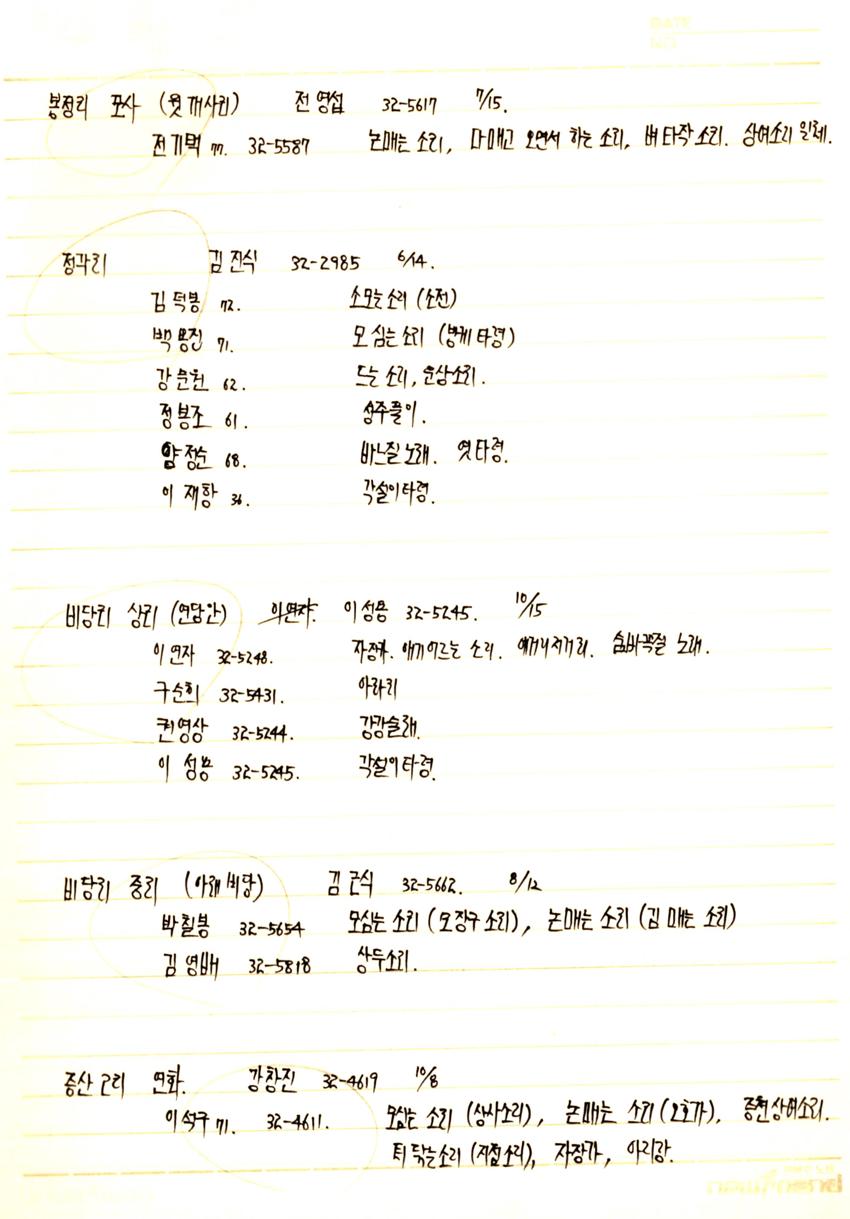 봉정리 포사 (윗개사리) 전영섭 32-5617 7/15.
전기택 77. 32-5587 논매는 소리, 다매고 오면서 하는 소리, 벼타작소리. 상여소리 일체.
정각리 김진식 32-2985 6/14.
김덕봉 72. 소모는소리 (소전)
백용진 71. 모심는소리 (방게타령)
강문원 62. 드는 소리, 운상소리.
정봉조 61. 성주풀이.
정순 68. 바느질노래. 엿타령.
이재항 36. 각설이타령.
비당리 상리 (연당안) 이연자. 이성용 32-5245. 10/15
이연자 32-5248. 자장가. 애기어르는 소리. 이거리저거리. 숨바꼭질 노래.
구순희 32-5431. 아라리
권영상 32-5244. 강강술래.
이성용 32-5245. 각설이타령.
비당리 중리 (아래비당) 김근식 32-5662. 8/12
박칠봉 32-5654 모심는 소리 (모장구 소리), 논매는 소리 (김매는 소리)
김영배 32-5818 상두소리.
증산2리 연화. 강창진 32-4619 10/8
이석구 71. 32-4611. 모심는 소리 (상사소리), 논매는 소리 (오호가), 중천상여소리.
터닦는소리 (지점소리), 자장가, 아리랑.